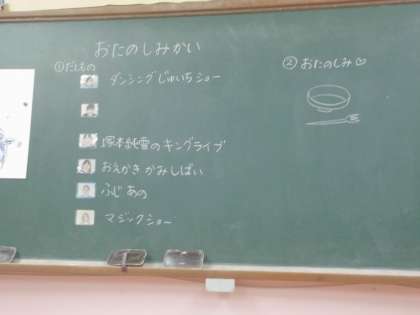 おたのしみかい
①だしもの
ダンシングじゅいちショー
塚本純雪のキングライブ
おえかきかみしばい
ふじあの
マジックショー
②おたのしみ♡